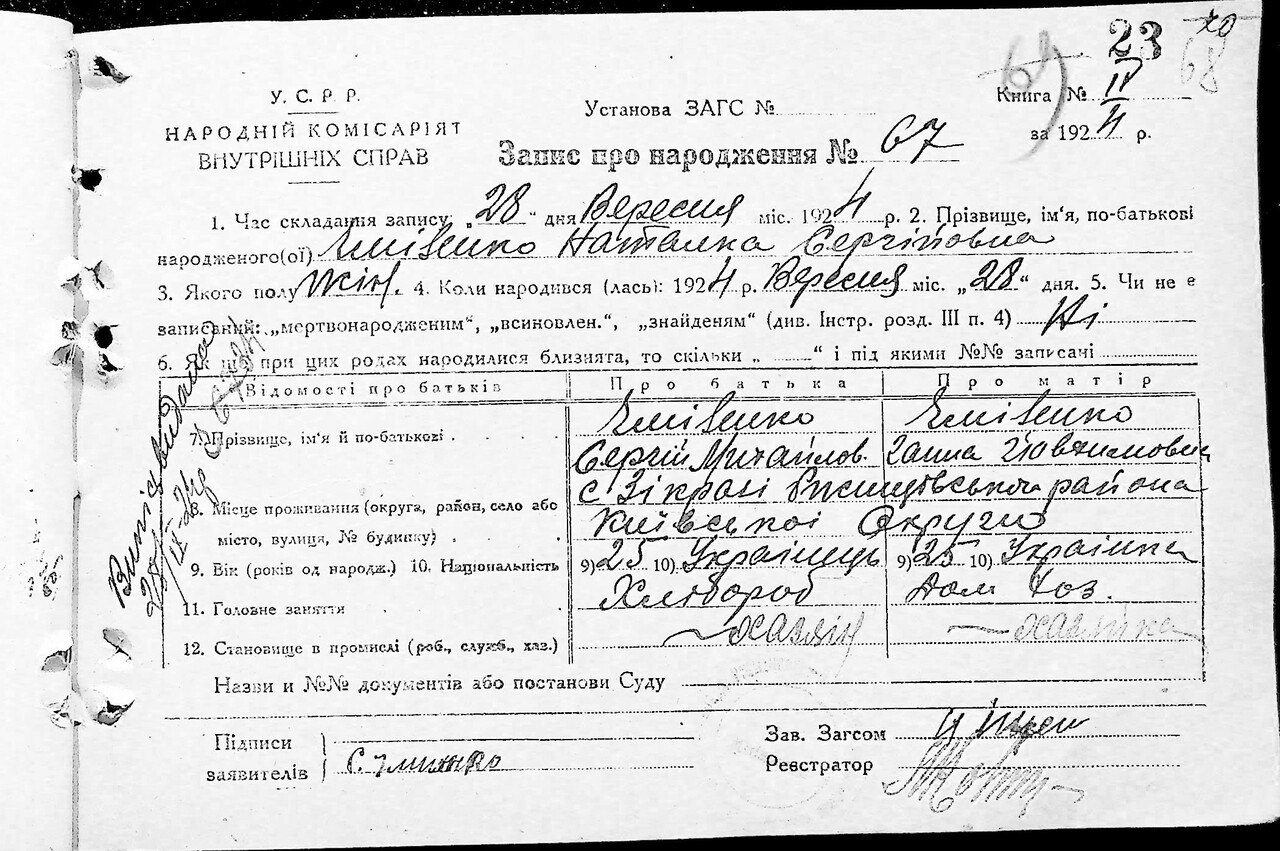 23 70
68
69
У. С. Р. Р.
НАРОДНІЙ КОМІСАРІЯТ
ВНУТРІШНІХ СПРАВ
Установа ЗАГС №
Книга № IV
за 1924 р.
Запис про народження № 67
1. Час складання запису: „28“ дня Вересня міс. 1924 р. 2. Прізвище, ім'я, по-батькові
народженого(ої) Наталка Сергійовна
3. Якого полу жін. 4. Коли народився (лась): 1924 р. Вересня міс. „28“ дня. 5. Чи не є
записаний: „мертвонародженим“, „всиновлен.“, „знайденям“ (див. Інстр. розд. III п. 4) Ні
6. Як що при цих родах народилися близнята, то скільки „ “ і під якими №№ записані
Відомості про батьків
Про батька
Про матір
7. Прізвище, ім'я й по-батькові
Сергій Михайлов.
Ганна
8. Місце проживання (округа, район, село або
місто, вулиця, № будинку)
с Зікрачі Ржищівського района
Київської Округи
9. Вік (років од народж.) 10. Національність
9) 25 10) Українець
9) 25 10) Українка
11. Головне заняття
Хлібороб
Дом Гоз.
12. Становище в промислі (роб., служб., хаз.)
хазяїн
хазяйка
Назви и №№ документів або постанови Суду
Підписи
заявителів
Зав. Загсом
Реєстратор